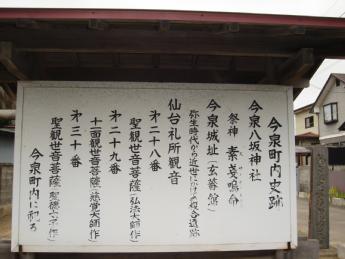 今泉町内史跡
今泉八坂神社
祭神 素戔嗚命
今泉城址(玄蕃館)
弥生時代から近世にかけての複合遺跡
仙台札所観音
オ二十八番
聖観世音菩薩(弘法大師作)
オ二十九番
十一面観世音菩薩(慈覚大師作)
オ三十番
聖観世音菩薩(聖徳太子作)
今泉町内に祀る